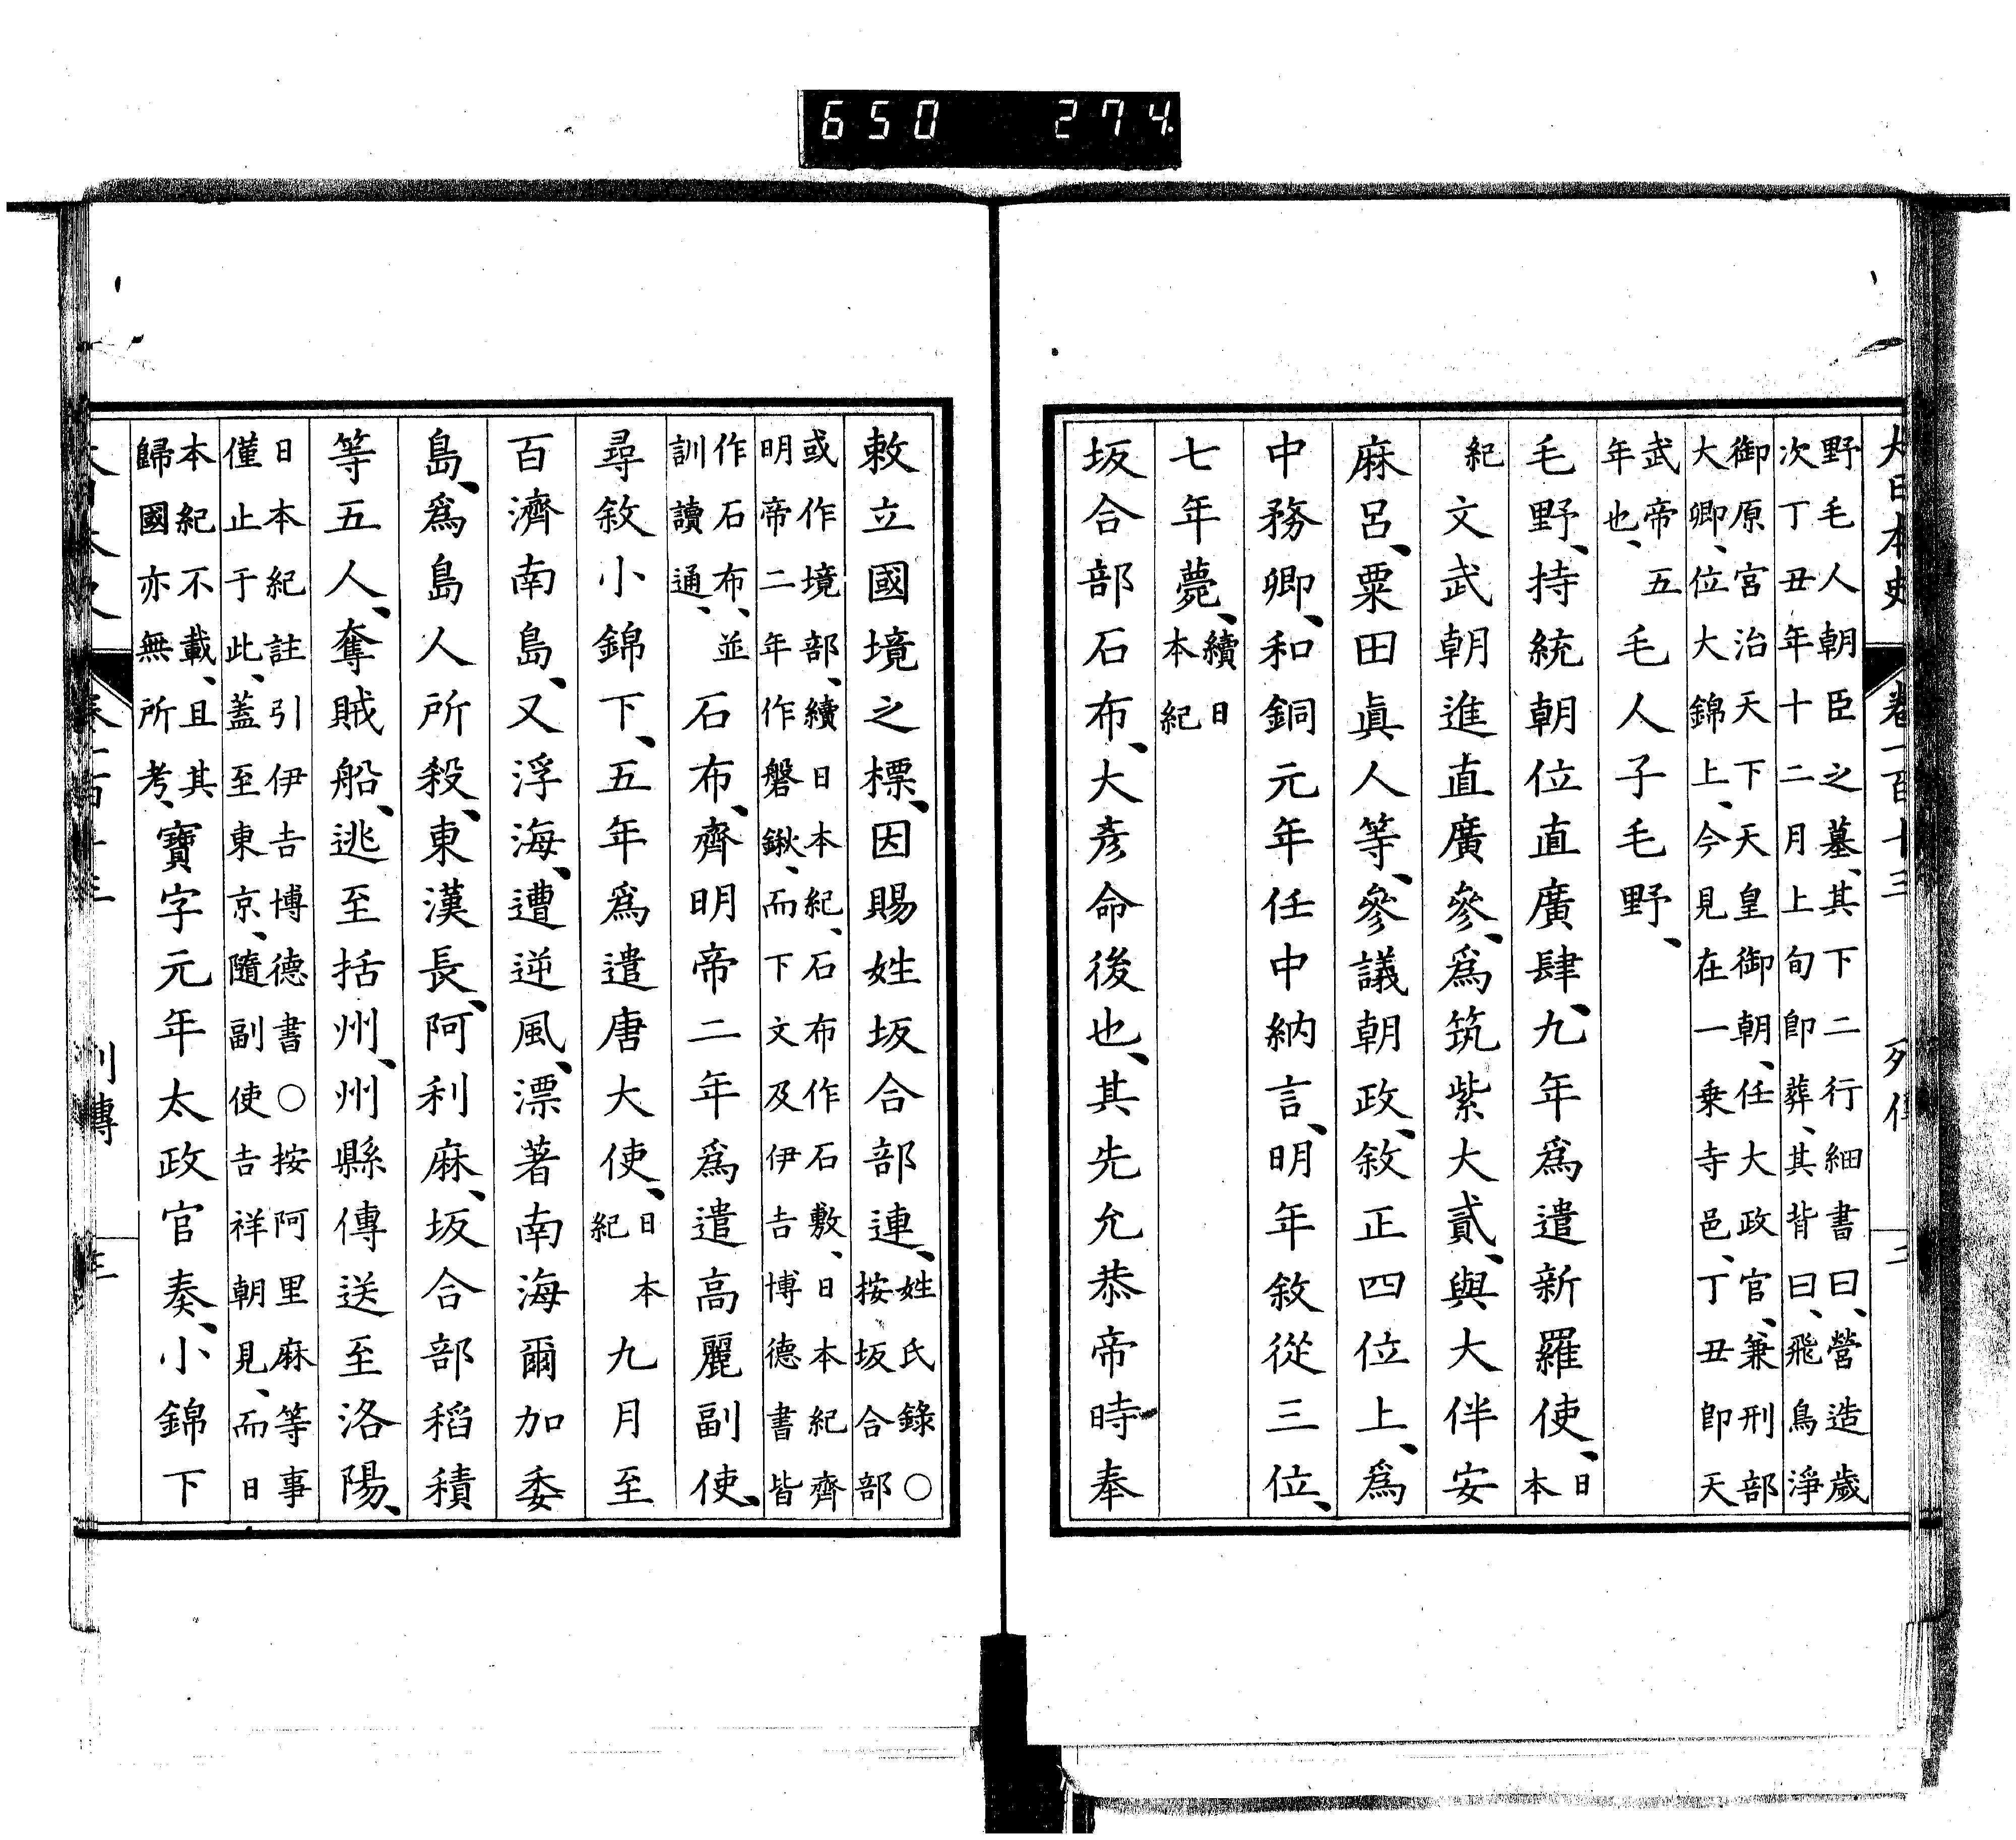 650 274
大日本史 卷一百十三 列傳 二
野毛人朝臣之墓、其下二行細書曰、營造歲
次丁丑年十二月上旬卽葬、其背曰、飛鳥淨
御原宮治天下天皇御朝、任大政官、兼刑部
大卿、位大錦上、今見在一乗寺邑、丁丑卽天
武帝五
年也、毛人子毛野、
毛野、持統朝位直廣肆、九年爲遣新羅使、日本
紀文武朝進直廣參、爲筑紫大貳、與大伴安
麻呂、粟田眞人等、參議朝政、敘正四位上、爲
中務卿、和銅元年任中納言、明年敘從三位、
七年薨、續日本紀
坂合部石布、大彦命後也、其先允恭帝時奉
敕立國境之標、因賜姓坂合部連、姓氏錄○按坂合部
或作境部、續日本紀、石布作石敷、日本紀齊
明帝二年作磐鍬、而下文及伊吉博德書皆
作石布、並
訓讀通、石布、齊明帝二年爲遣高麗副使、
尋敘小錦下、五年爲遣唐大使、日本紀九月至
百濟南島、又浮海、遭逆風、漂著南海爾加委
島、爲島人所殺、東漢長、阿利麻、坂合部稻積
等五人、奪賊船、逃至括州、州縣傳送至洛陽、
日本紀註引伊吉博德書○按阿里麻等事
僅止于此、蓋至東京、隨副使吉祥朝見、而日
本紀不載、且其
歸國亦無所考、寶字元年太政官奏、小錦下
列傳 三